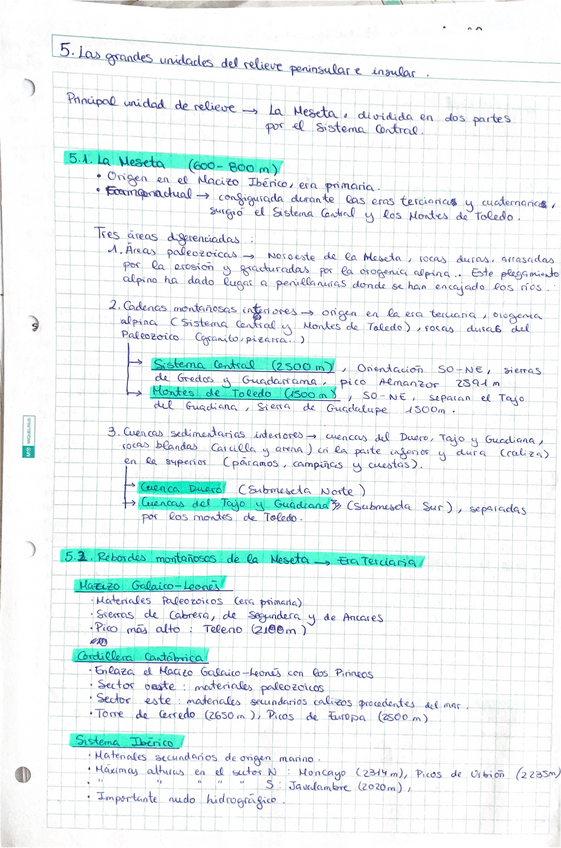 5. Las grandes unidades del relieve peninsular e insular.
Principal unidad de relieve → La Meseta, dividida en dos partes
por el Sistema Central.
5.1. La Meseta (600-800 m)
• Origen en el Macizo Ibérico, era primaria.
• → configurada durante las eras terciarias y cuaternarias,
surgió el Sistema Central y los Montes de Toledo.
Tres áreas diferenciadas:
1. Áreas paleozoicas → Noroeste de la Meseta, rocas duras, arrasadas
por la erosión y fracturadas por la orogenia alpina.. Este plegamiento
alpino ha dado lugar a penillanuras donde se han encajado los ríos.
2. Cadenas montañosas interiores → origen en la era terciaria, orogenia
alpina (Sistema Central y Montes de Toledo), rocas duras del
Paleozoico (granito, pizarra..)
→ Sistema Central (2500 m), Orientación SO-NE, sierras
de Gredos y Guadarrama, pico Almanzor 2591 m
→ Montes de Toledo (1500 m), SO-NE, separan el Tajo
del Guadiana, Sierra de Guadalupe 1500m.
3. Cuencas sedimentarias interiores → cuencas del Duero, Tajo y Guadiana,
rocas blandas (arcilla y arena) en la parte inferior y dura (caliza)
en la superior (páramos, campiñas y cuestas).
→ Cuenca Duero (Submeseta Norte)
→ Cuencas del Tajo y Guadiana (Submeseta Sur), separadas
por los montes de Toledo.
5.2. Rebordes montañosos de la Meseta → Era Terciaria
Macizo Galaico-Leonés
· Materiales Paleozoicos (era primaria)
· Sierras de Cabrera, de Segundera y de Ancares
· Pico más alto: Teleno (2188m)
Cordillera Cantábrica
· Enlaza el Macizo Galaico-Leonés con los Pirineos
· Sector oeste: materiales paleozoicos
· Sector este: materiales secundarios calizos procedentes del mar.
· Torre de Cerredo (2650 m), Picos de Europa (2500 m)
Sistema Ibérico
· Materiales secundarios de origen marino.
· Máximas alturas en el sector N: Moncayo (2314 m), Picos de Urbión (2235m)
· " " " " " S: Javalambre (2020m),
· Importante nudo hidrográfico.